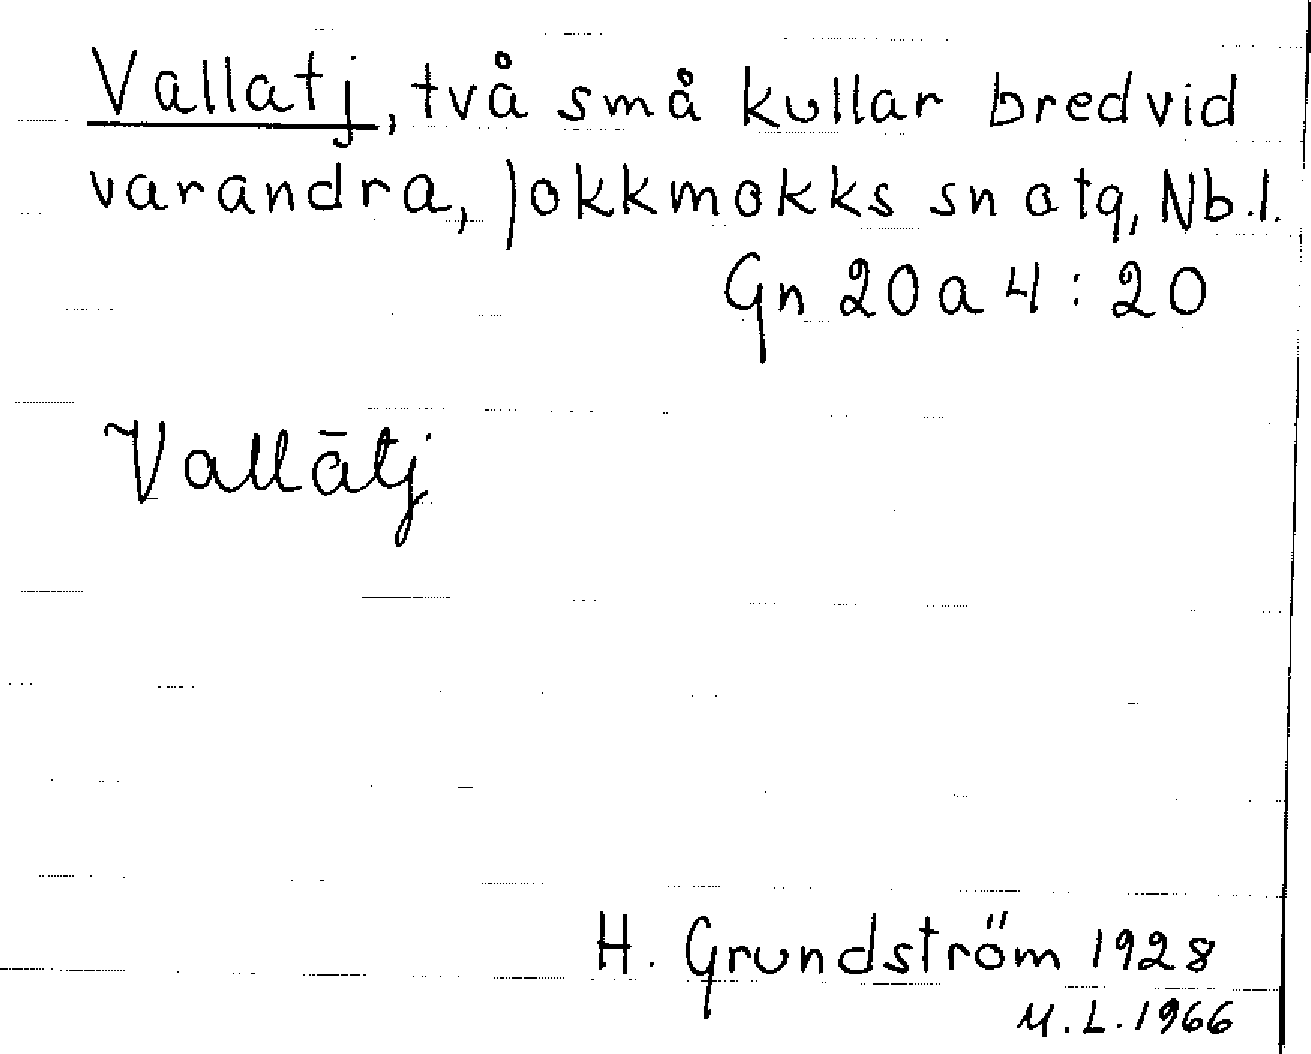 Vallatj, två små kullar bredvid
varandra, Jokkmokks sn o tg, Nb.l.
Gn 20 a 4 : 20
Vallātj
H. Grundström 1928
M.L. 1966